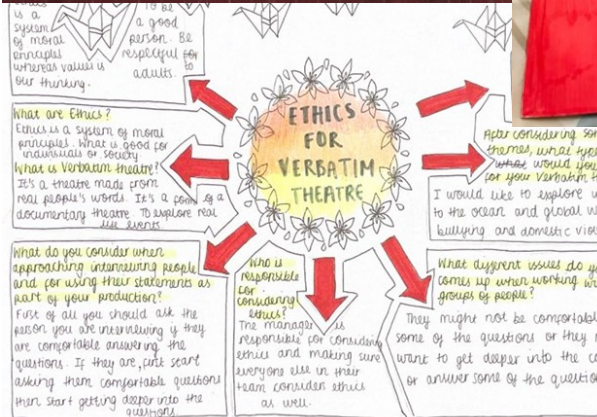 is a
system
of moral
principles
whereas values is
our thinking.
To be
a good
person. Be
respectful for
to
adults.
ETHICS
FOR
VERBATIM
THEATRE
What are Ethics?
Ethics is a system of moral
principles. What is good for
individuals or society
What is Verbatim theatre?
It's a theatre made from
real people's words. It's a form of a
documentary theatre. To explore real
life events.
After considering
themes, what
what would you
for your Verbatim
I would like to explore
to the ocean and global
bullying and domestic
What do you consider when
approaching interviewing people
and for using their statements as
part of your production?
First of all you should ask the
person you are interviewing if they
are comfortable answering the
questions. If they are, first start
asking them comfortable questions
then start getting deeper into the
questions.
Who is
responsible
for
considering
ethics?
The manager is
responsible for considering
ethics and making sure
everyone else in their
team consider ethics
as well.
What different issues do
comes up when working
groups of people?
They might not be
some of the questions or they
want to get deeper into the
or answer some of the